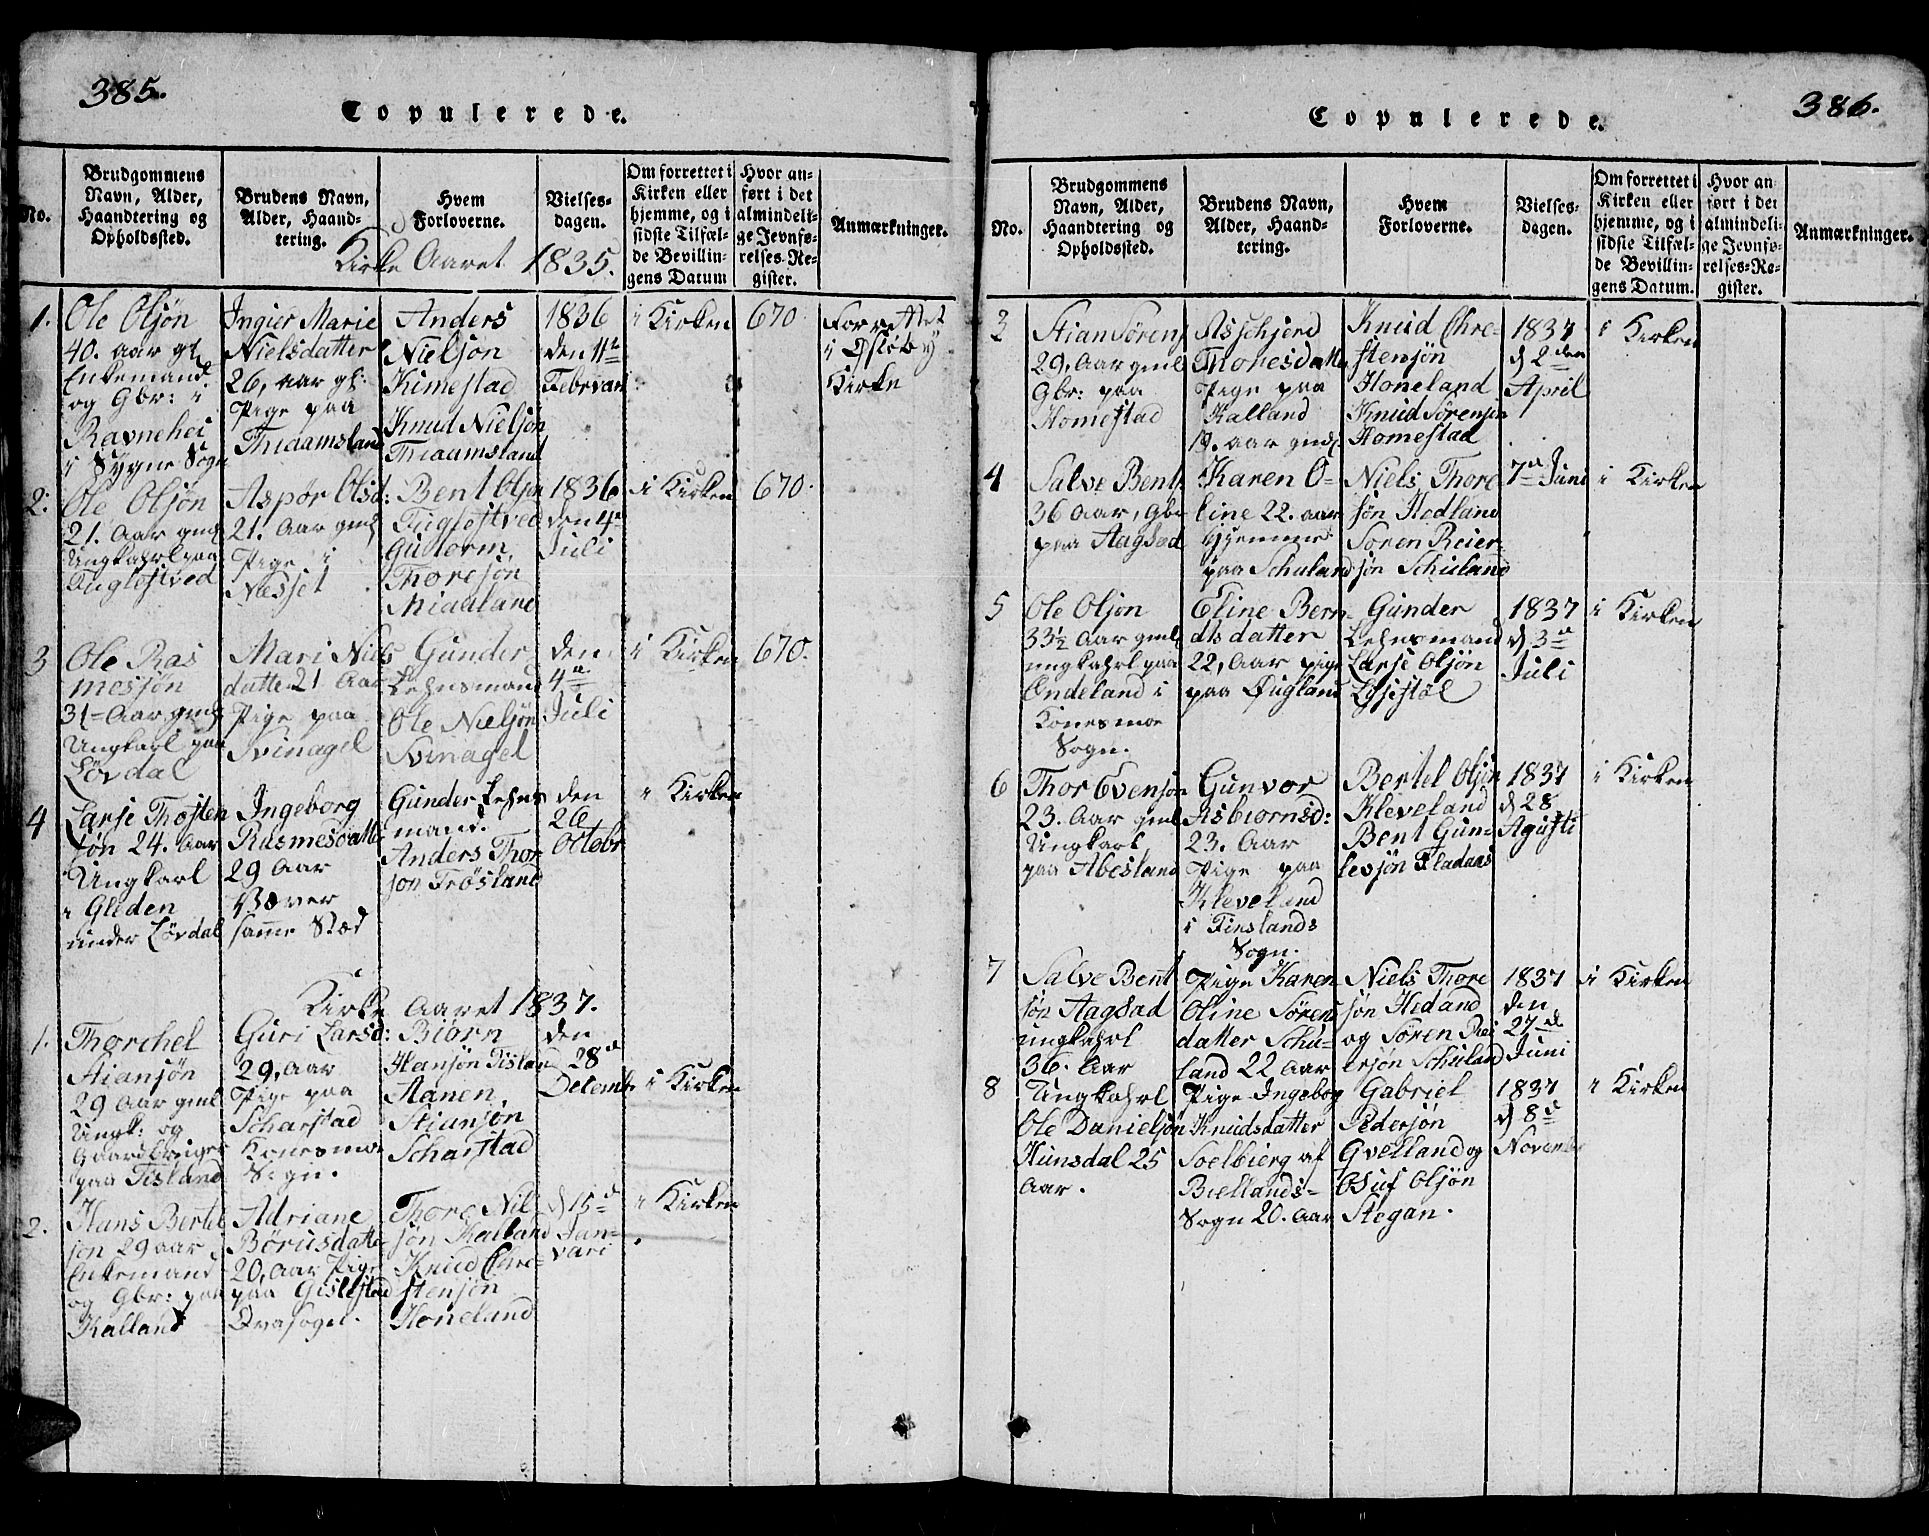 385.
Copulerede.
No.
Brudgommens
Navn, Alder,
Haandtering og
Opholdssted.
Brudens Navn,
Alder, Haand-
tering.
Hvem
Forloverne.
Vielses-
dagen.
Om forrettet i
Kirken eller
hjemme, og i
sidste Tilfæl-
de Bevillin-
gens Datum
Hvor an-
ført i det
almindeli-
ge Jevnfø-
relses-Re-
gister.
Anmærkninger.
Kirke Aaret 1835.
1.
Ole Olsøn
40. aar gl.
Enkemand
og Gbr: i
Ravnehei
i Øygne Sogn
Ingier Marie
Nielsdatter
26, aar gl:
Pige paa
Thraamsland
Anders
Nielsøn
Kimestad
Knud Nielsøn
Thraamsland
1836
den 11te
Februari
i Kirken
670
Forrettet
i Øslebÿ
Kirke
2:
Ole Olsøn
21. Aar gml
Ungkahrl paa
Fuglestved
Aspør Olsd:
21. Aar gml
Pige i
Nesset
Bent Olsøn
Fuglestved
Gutorm
Thoresøn
Midtland
1836
den 4de
Juli
i Kirken
670.
3
Ole Ras
mesøn
31= Aar gml
Ungkarl paa
Løvdal
Mari Niels
datte 21 Aar
Pige paa
Svinagel
Gunder
Lehnsmand
Ole Nielsøn
Svinagel
den
4de
Juli
i Kirken
670.
4
Larse Thosten
søn 24. Aar
Ungkarl
i Gliden
under Løvdal
Ingeborg
Rasmesdatte
29 Aar
Væver
samme Stæd
Gunder Lehns
mand.
Anders Thor
søn Trøsland
den
26
Octobr
i Kirken
Kirke Aaret 1837.
1.
Thorchel
Stiansøn
29 Aar gml
Ungk: og
Gaardbruger
paa Tisland
Guri Larsd:
29, Aar
Pige paa
Scharstad
Konesmoe
Sogn.
Biørn
Hansøn Tisland
Aanen
Stiansøn
Scharstad
den
28de
Decembr
i Kirken
2.
Hans Bertel
søn 29 aar
Enkemand
og Gbr: paa
Kalland
Adriane
Børusdatte
20, Aar Pige
paa Gislestad
Øvasogel.
Thore Nil
søn Kalland
Knud Chre-
stensøn
Honeland
d 15de
Jan-
vari
i Kirken
386.
Copulerede.
No.
Brudgommens
Navn, Alder,
Haandtering og
Opholdssted.
Brudens Navn,
Alder, Haand-
tering.
Hvem
Forloverne.
Vielses-
dagen.
Om forrettet i
Kirken eller
hjemme, og i
sidste Tilfæl-
de Bevillin-
gens Datum.
Hvor an
ført i det
almindeli-
ge Jevnfø-
relses-Re-
gister.
Anmærkninger.
3
Stian Sørens
29, Aar gml
Gbr: paa
Homestad
Asschjerd
Thoresdatte
Pige paa
Kalland
19. aar gml
Knud Chre-
stensøn
Honeland
Knud Sørensøn
Homestad
1837
d 2den
April
i Kirken
4
Salve Bents
36 Aar, Gbr
paa Aagsad
Karen O-
line 22. aar
Hjemme
paa Schuland
Niels Thore
søn Hodland
Soren Reier-
søn Schuland
7de Juni
i Kirken
5
Ole Olsøn
33½ Aar gml
ungkahrl paa
Øndeland i
Konesmoe
Sogn.
Eline Bern-
dtsdatter
22, Aar pige
paa Øugland
Gunder
Lehnsmand
Larse Olsøn
Løsestøl
1837
d 3de
Juli
i Kirken
6
Thor Evensøn
23. Aar gml
Ungkarl
paa Abesland
Gunvor
Asbiørnsd:
23. Aar
Pige paa
Kleveland
i Finslands
Sogn.
Bertel Olsøn
Kleveland
Bent Gun-
levsøn Fladans
1837
d 28
Agusti
i Kirken
7
Salve Bent
søn Aagsad
ungkahrl
36. Aar
Pige Karen
Oline Sørens
datter Schu-
land 22 Aar
Niels Thore
søn Hidand
og Søren Rei
ersøn Schuland
1837
den
27de
Juni
i Kirken
8
Ungkahrl
Ole Danielsøn
Hunsdal 25
Aar.
Pige Ingeborg
Knudsdatter
Soelbierg af
Biellands-
Sogn 20. Aar
Gabriel
Pedersøn
Gvelland og
Osuf Olsøn
Stegan.
1837
d 8de
Novembr
i Kirken